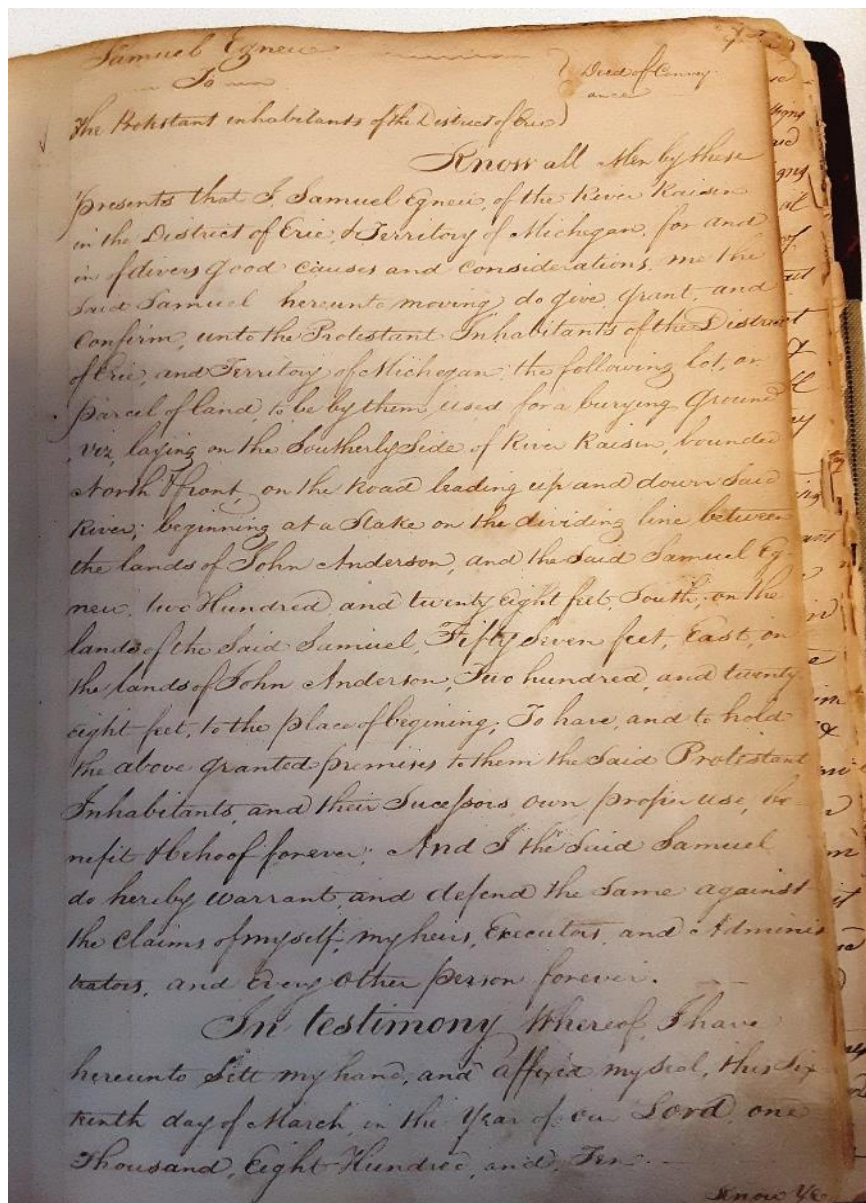 Samuel Egnew
To
Deed of Convey-
ance
The Protestant inhabitants of the District of Erie
Know all Men by these
presents that I, Samuel Egnew, of the River Raisin
in the District of Erie, & Territory of Michigan, for and
in of divers good causes and considerations, me the
Said Samuel hereunto moving, do give, grant, and
Confirm, unto the Protestant Inhabitants of the District
of Erie, and Territory of Michegan, the following lot, or
parcel of land, to be by them, used for a burying Ground
viz, laying on the Southerly Side of River Raisin, bounded
North & front, on the Road leading up and down Said
River; beginning at a Stake on the dividing line between
the lands of John Anderson, and the Said Samuel Eg-
new, two Hundred, and twenty eight feet, South, on the
lands of the Said Samuel, Fifty Seven feet, East, on
the lands of John Anderson, Two hundred, and twenty
eight feet, to the place of begining; To have, and to hold
the above granted premises to them the Said Protestant
Inhabitants, and their Sucessors, own proper use, be-
nefit & behoof forever; And I the Said Samuel
do hereby warrant, and defend the Same against
the Claims of myself, my heirs, Executors, and Adminis
trators, and every other person forever.
In testimony Whereof, I have
hereunto Sett my hand, and affixed my seal, this Six
teenth day of March, in the Year of our Lord, one
Thousand, Eight Hundred, and, Ten.
Know Ye